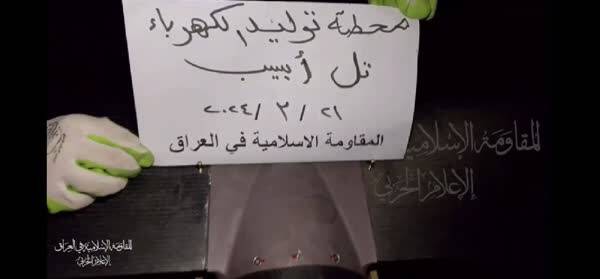 محطة توليد الكهرباء
تل أبيب
٢٠٢٤/٣/٢١
المقاومة الاسلامية في العراق
المقاومة الإسلامية
الإعلام الحربي
المقاومة الإسلامية في العراق
الإعلام الحربي